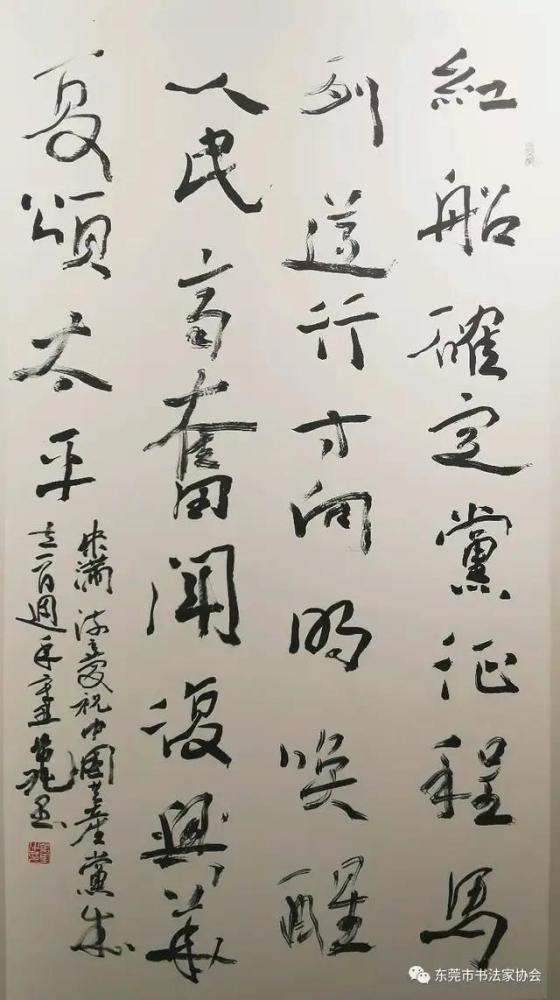 紅船確定黨征程馬
列遵行方向明喚醒
人民奮鬥復興華
夏頌太平
詩慶祝中國共產黨成
立一百週年辛丑
东莞市书法家协会